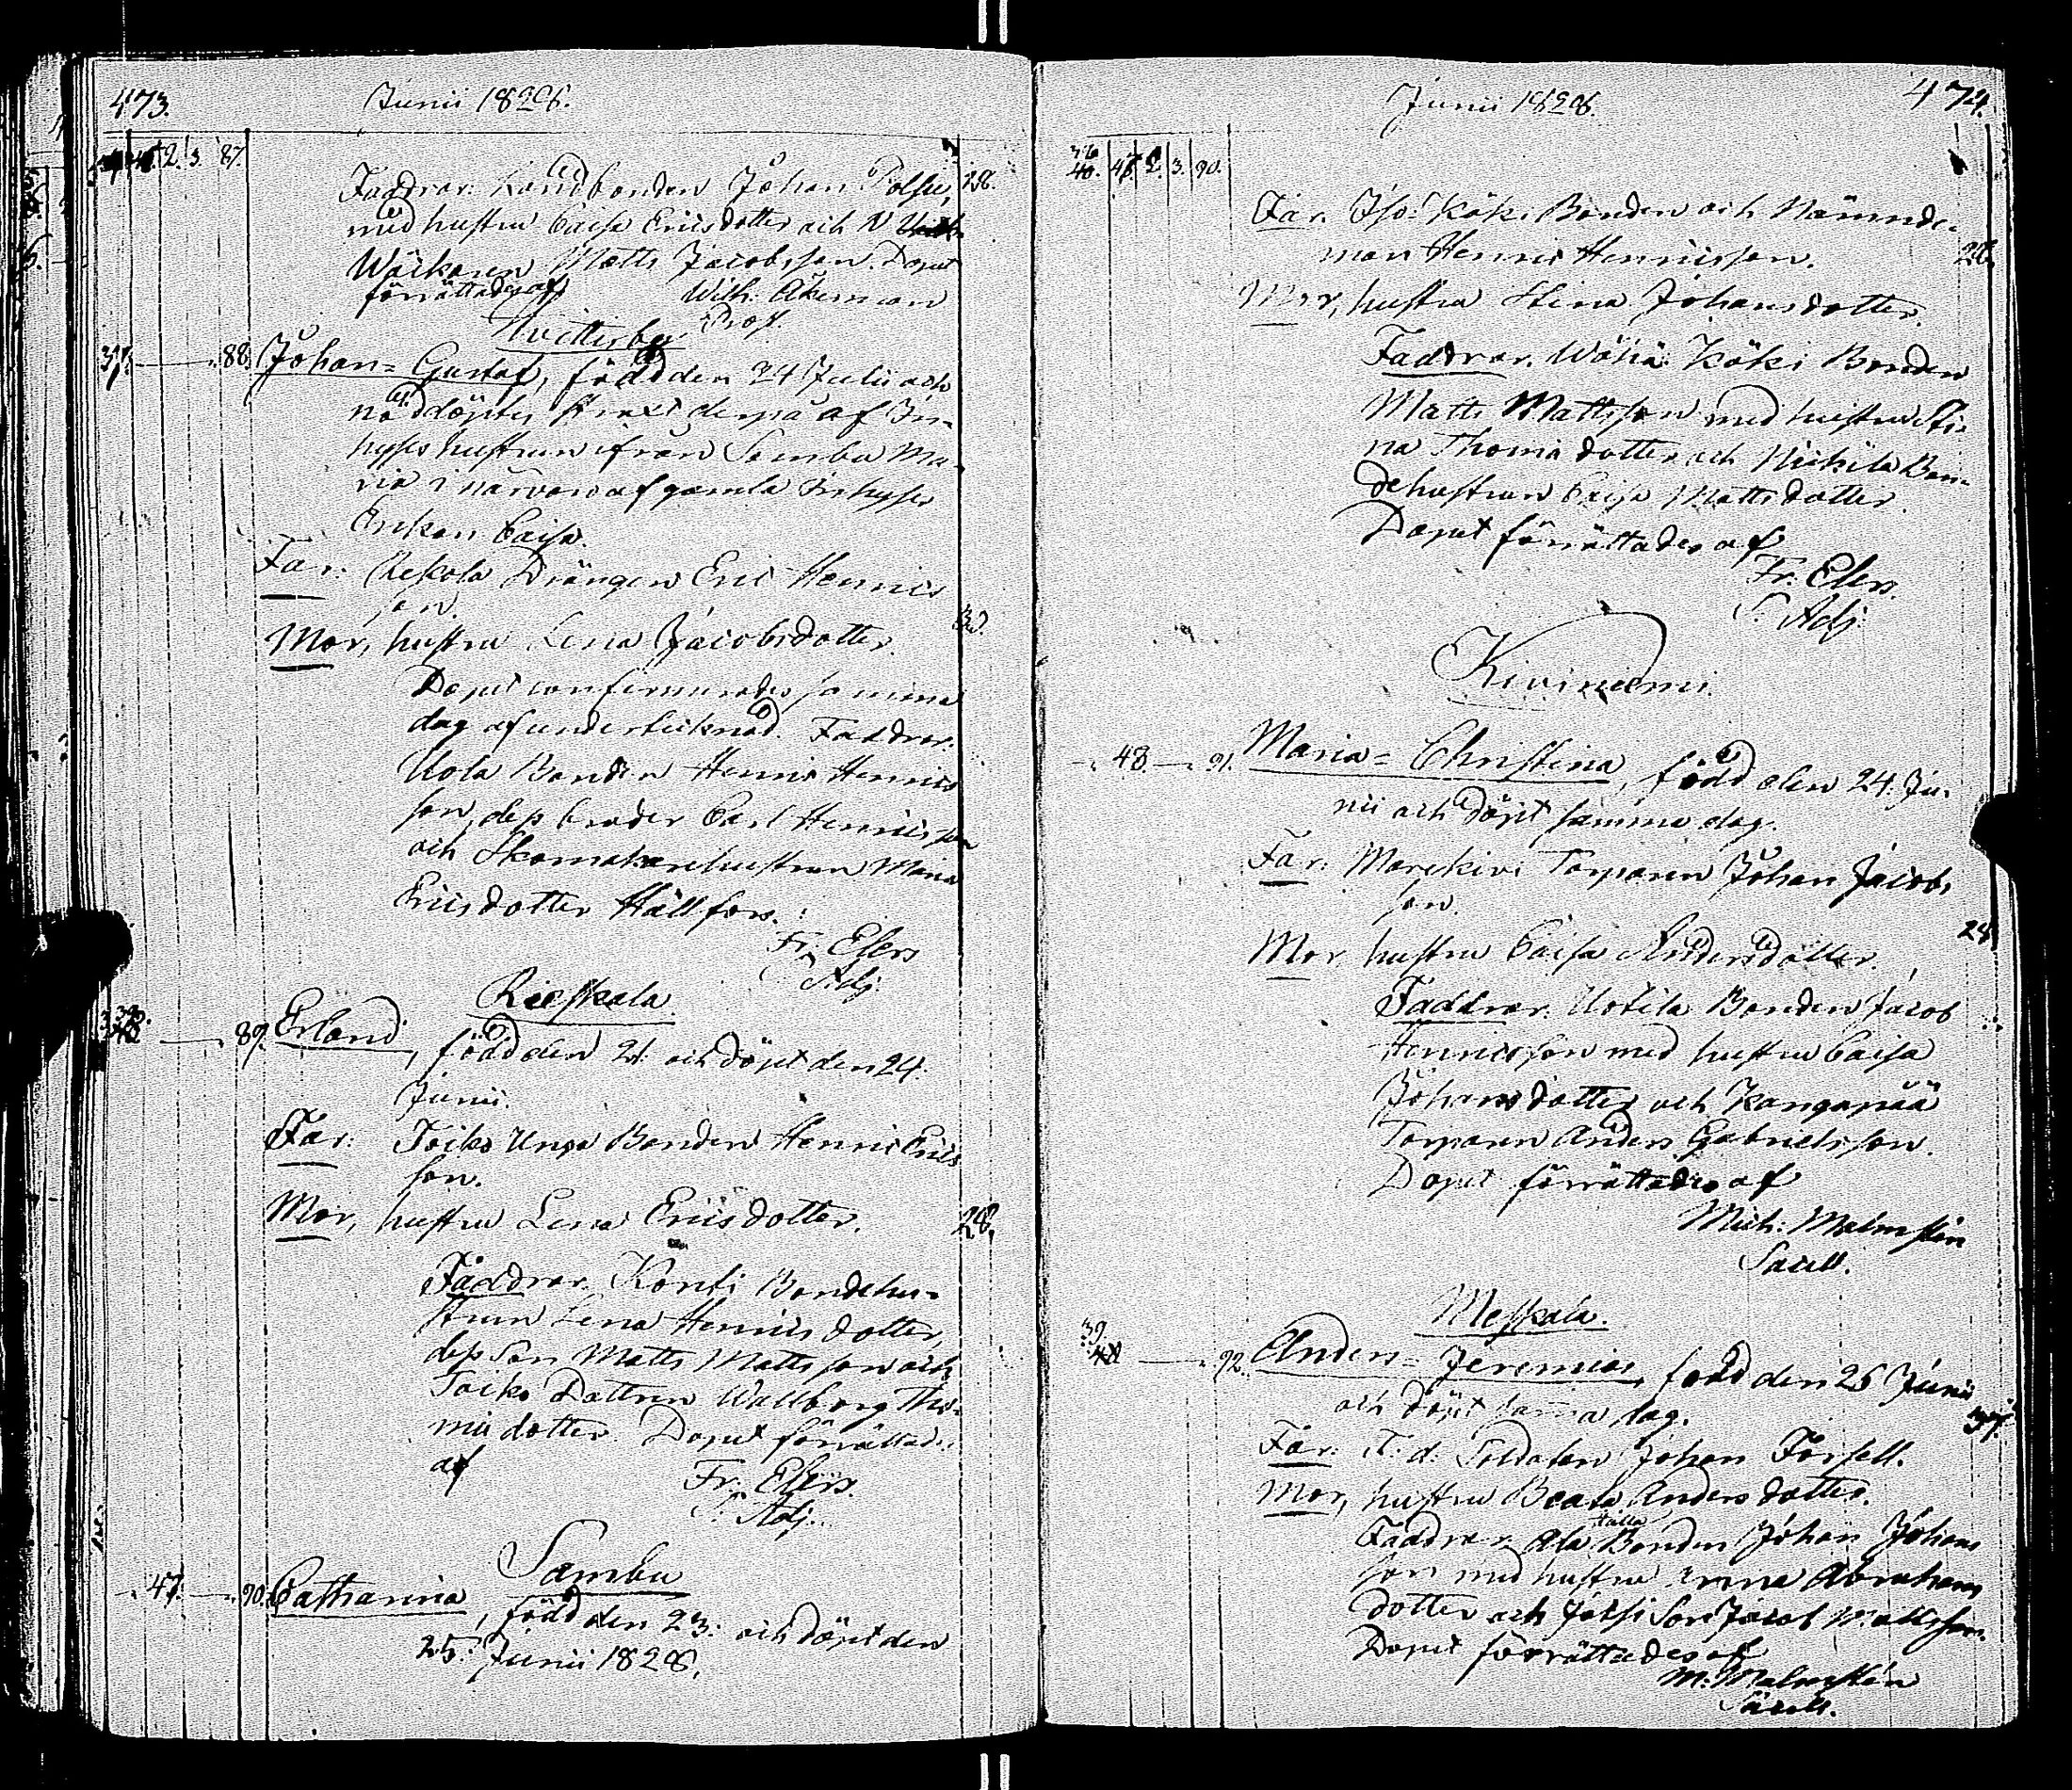 473.
Junii 1828.
2. 3. 87.
Faddrar: Landbonden Johan Polsu, 28.
med hustru Caisa Ericsdotter och N
Wäckaren Matts Jacobsson. Doput
förrättades af Wilh: Åkerman
Prost.
Witterby
37. 88. Johan=Gustaf, född den 24 Julii och
nöddöptes strax derpå af In-
hyses hustrun ifrån Sambu Ma-
ria i närvaro af gamla Inhyses
Enkan Caisa.
Far: Reskola Drängen Eric Henrics
son
Mor, hustru Lena Jacobsdotter. 30.
Doput confirmerades samma
dag af undertecknad. Faddrar:
Uola Bonden Henric Henrics
son, dess broder Carl Henricsson
och Skomakarehustrun Maria
Ericsdotter Hällfors.
Fr. Elers
S. Adj.
Rieskala
89. Erland, född den 21. och döpt den 24.
Junii.
Far: Toiko Unga Bonden Henric Erics
son.
Mor, hustru Lena Ericsdotter. 28.
Faddrar: Konti Bondehu-
strun Lena Henricsdotter,
dess Son Matts Mattsson och
Toiko Dottren Wallborg Tho-
mædotter. Doput förrättad.
af Fr: Elers.
S. Adj.
Sambu
47. 90. Catharina, född den 23. och döpt den
25. Junii 1828.
474.
Junii 1828.
47. 2. 3. 90.
Far. Iso: Köki Bonden och Nämnde-
man Henric Henricsson. 26.
Mor, hustru Stina Johansdotter.
Faddrar. Wähä: Köki Bonden
Matts Mattsson med hustru Sti-
na Thomædotter och Nickilä Bon-
dehustrun Caisa Mattsdotter.
Doput förrättades af
Fr: Elers.
S. Adj.
Kiviniemi
48. 91. Maria=Christina, född den 24. Ju-
nii och döpt samma dag.
Far: Marekivi Torparen Johan Jacobs
son.
Mor, hustru Caisa Andersdotter. 28
Faddrar: Uotila Bonden Jacob
Henricsson med hustru Caisa
Johansdotter och Kangapää
Torparen Anders Gabrielsson.
Doput förrättades af
Mich: Malmstén
Sacell.
Meskala.
39. 92. Anders=Jeremias, född den 25 Junii
och döpt samma dag.
Far: A: d: Soldaten Johan Forsell. 37.
Mor, hustru Beata Andersdotter.
Faddrar. Ala Hälla Bonden Johan Johans
son med hustru Anna Abrahams
dotter och Jossi Son Jacob Mattsson.
Doput förrättades af
M: Malmstén
Sacell.